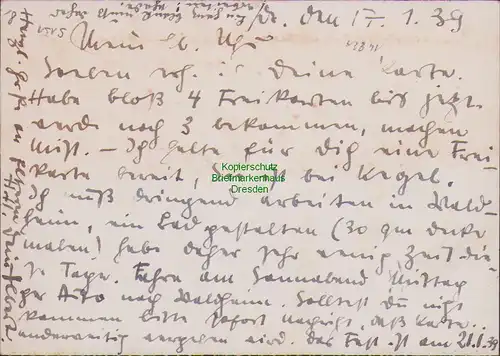 Dr. den 17. 1. 39
Mein lb. Uhu
Soeben erh. i. deine Karte.
Habe bloß 4 Freikarten bis jetzt.
werde noch 3 bekommen, machen
Mist. – Ich halte für Dich eine Frei-
karte bereit, bei Kegel.
Kopierschutz
Briefmarkenhaus
Dresden
Ich muß dringend arbeiten in Wald-
heim, ein Bad gestalten (30 qm Decke
malen) habe daher sehr wenig Zeit die-
se Tage. Fahre am Sonnabend Mittag
per Auto nach Waldheim. Solltest Du nicht
kommen bitte sofort Nachricht, daß Karte
anderweitig vergeben wird. das Fest ist am 21.1.39